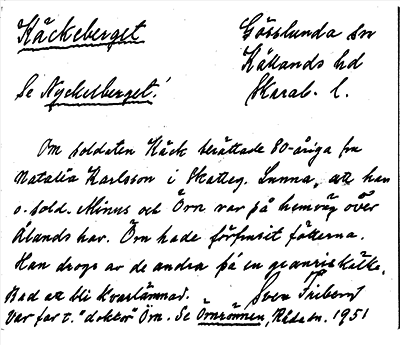 Käckeberget
Götslunda sn
Kållands hd
Skarab. l.
Se Nyckelberget!
Om soldaten Käck berättade 80-åriga fru
Natalia Karlsson i Skatteg. Lunna, att han
o. sold. Minus och Örn var på hemväg över
Ålands hav. Örn hade förfrusit fötterna.
Han drogs av de andra på en granriskälke.
Bad att bli kvarlämnad.
Sven Friberg
Var far t. "doktor" Örn. Se Örnrönnen, 1951